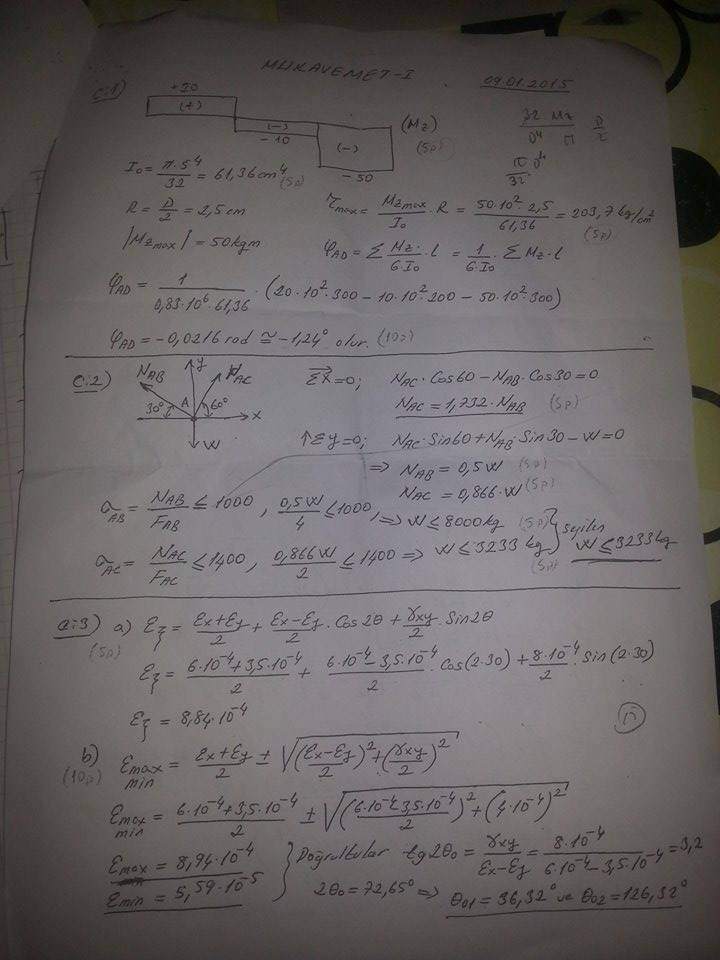 MUKAVEMET-I
09.01.2015
C:1)
+20
(+)
(-)
-10
(-)
-50
(Mz)
(5p)
32 Mz / D⁴ π · D/2
π D⁴ / 32
I₀ = π·5⁴/32 = 61,36 cm⁴ (5p)
R = D/2 = 2,5 cm
|Mz max| = 50 kgm
τmax = Mzmax/I₀ · R = 50·10²·2,5/61,36 = 203,7 kg/cm² (5p)
φAD = Σ Mz·/G·I₀ · l = 1/G·I₀ · Σ Mz·l
φAD = 1/0,83·10⁶·61,36 · (20·10²·300 - 10·10²·200 - 50·10²·300)
φAD = -0,0216 rad ≅ -1,24° olur. (10p)
C:2)
NAB
y
NAC
30°
A
60°
x
W
ΣX=0; NAC·Cos60 - NAB·Cos30 = 0
NAC = 1,732·NAB (5p)
↑Σy=0; NAC·Sin60 + NAB·Sin30 - W = 0
⇒ NAB = 0,5W (5p)
NAC = 0,866·W (5p)
σAB = NAB/FAB ≤ 1000, 0,5W/4 ≤ 1000, ⇒ W ≤ 8000 kg (5p)
σAC = NAC/FAC ≤ 1400, 0,866W/2 ≤ 1400 ⇒ W ≤ 3233 kg (5p)
} seçilen W ≤ 3233 kg
C:3) a) εξ = εx+εy/2 + εx-εy/2 · Cos2θ + γxy/2 · Sin2θ
(5p)
εξ = 6·10⁻⁴+3,5·10⁻⁴/2 + 6·10⁻⁴-3,5·10⁻⁴/2 · Cos(2·30) + 8·10⁻⁴/2 · Sin(2·30)
εξ = 8,84·10⁻⁴
b) εmax min = εx+εy/2 ± √(εx-εy/2)² + (γxy/2)²
(10p)
εmax min = 6·10⁻⁴+3,5·10⁻⁴/2 ± √(6·10⁻⁴-3,5·10⁻⁴/2)² + (4·10⁻⁴)²
εmax = 8,94·10⁻⁴
εmin = 5,59·10⁻⁵
} Doğrultular tg2θ₀ = γxy/εx-εy = 8·10⁻⁴/6·10⁻⁴-3,5·10⁻⁴ = 3,2
2θ₀ = 72,65° ⇒ θ₀₁ = 36,32° ve θ₀₂ = 126,32°